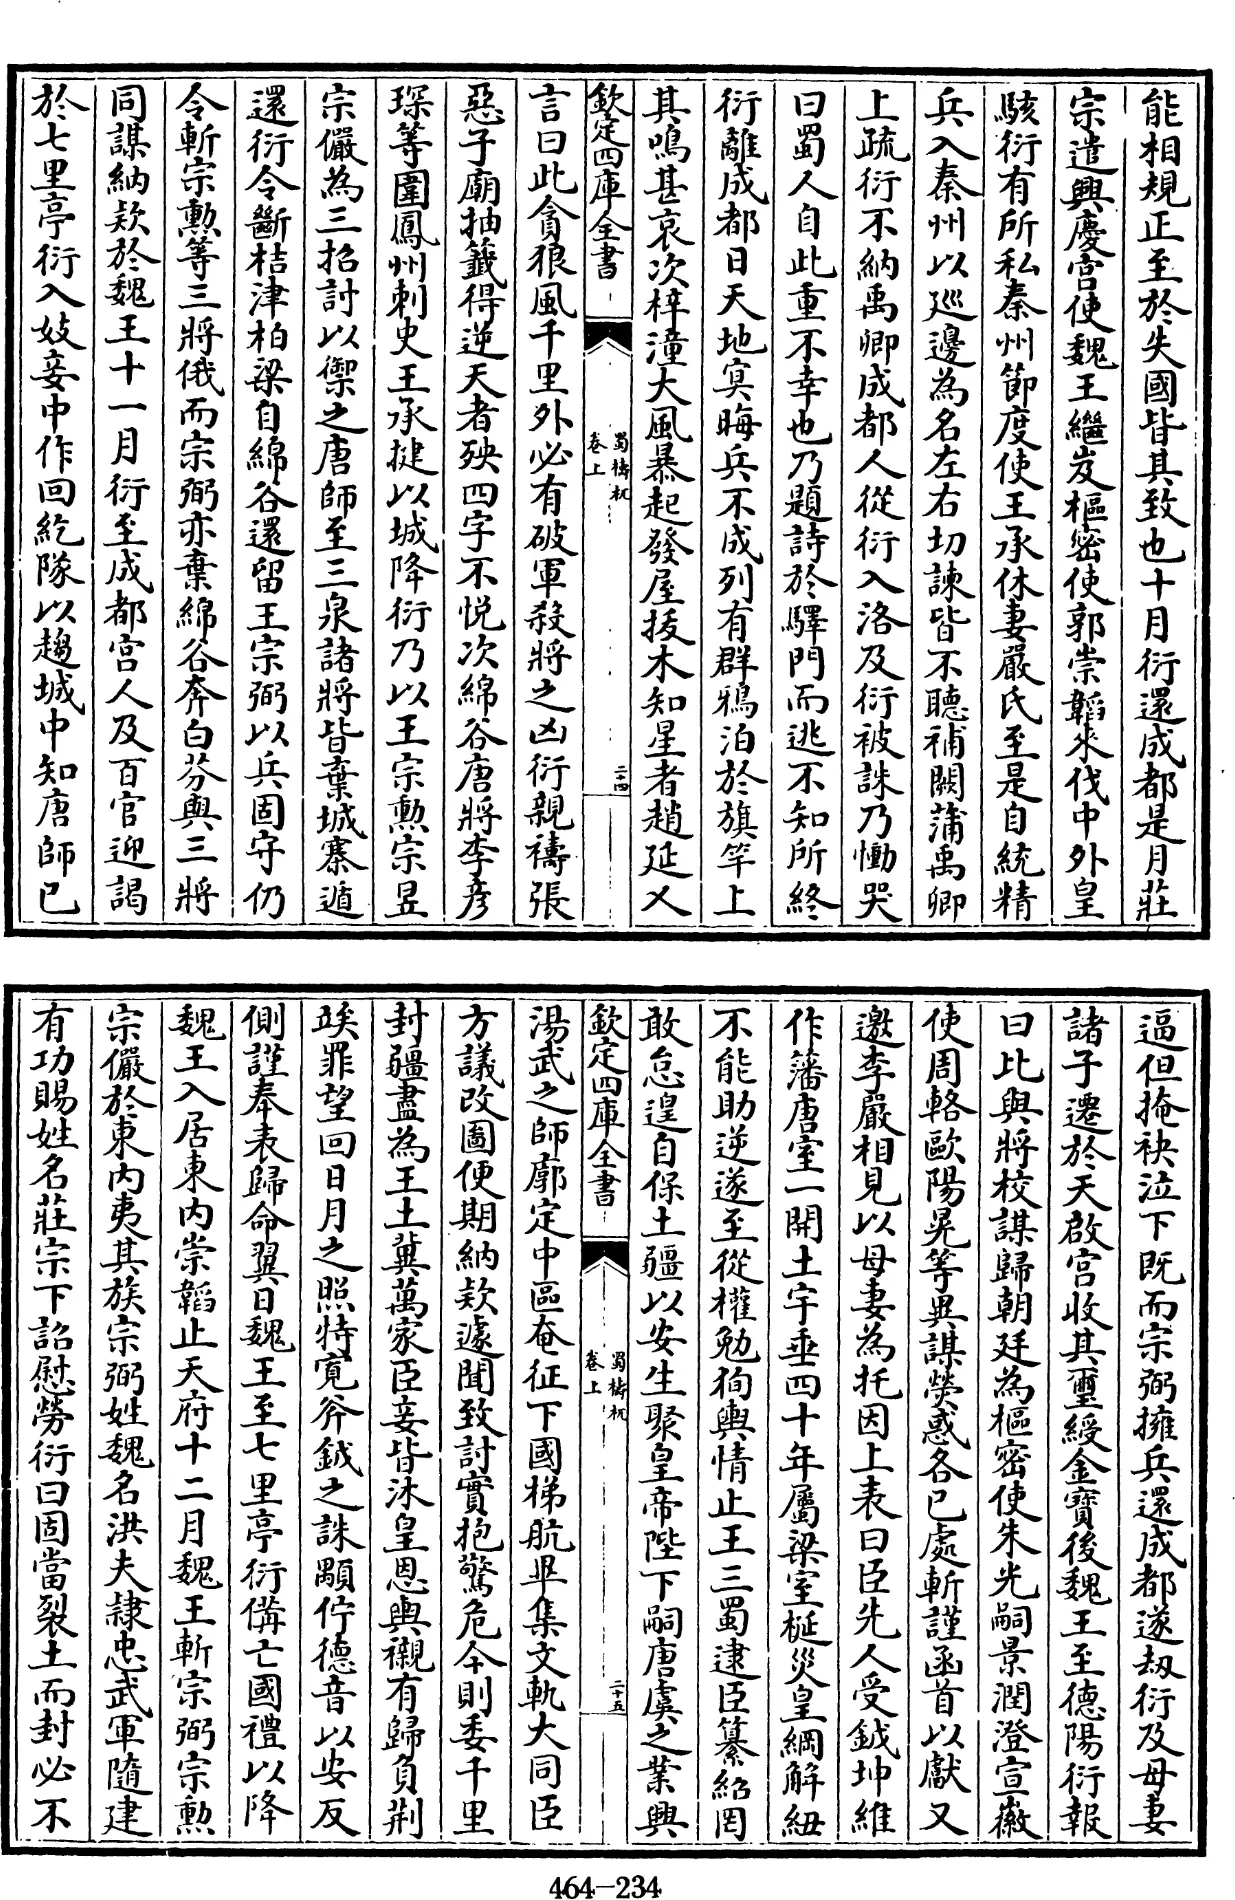 能相規正至於失國皆其致也十月衍還成都是月莊
宗遣興慶宫使魏王繼岌樞密使郭崇韜來伐中外皇
駭衍有所私秦州節度使王承休妻嚴氏至是自統精
兵入秦州以廵邊為名左右切諫皆不聽補闕蒲禹卿
上疏衍不納禹卿成都人從衍入洛及衍被誅乃慟哭
曰蜀人自此重不幸也乃題詩於驛門而逃不知所終
衍離成都日天地㝠晦兵不成列有群鴉泊於旗竿上
其鳴甚哀次梓潼大風暴起發屋拔木知星者趙延乂
欽定四庫全書
蜀檮杌
卷上
二十四
言曰此貪狼風千里外必有破軍殺將之凶衍親禱張
惡子廟抽籤得逆天者殃四字不悦次綿谷唐將李彦
琛等圍鳳州刺史王承捷以城降衍乃以王宗勲宗昱
宗儼為三招討以禦之唐師至三泉諸將皆棄城寨遁
還衍令斷桔津柏梁自綿谷還留王宗弼以兵固守仍
令斬宗勲等三將俄而宗弼亦棄綿谷奔白芬與三將
同謀納欵於魏王十一月衍至成都宫人及百官迎謁
於七里亭衍入妓妾中作回紇隊以趨城中知唐師已
逼但掩袂泣下既而宗弼擁兵還成都遂刼衍及母妻
諸子遷於天啟宫收其璽綬金寶後魏王至德陽衍報
曰比與將校謀歸朝廷為樞密使朱光嗣景潤澄宣徽
使周輅歐陽晃等異謀熒惑各已處斬謹函首以獻又
邀李嚴相見以母妻為托因上表曰臣先人受鉞坤維
作藩唐室一開土宇垂四十年屬梁室梃災皇綱解紐
不能助逆遂至從權勉狥輿情止王三蜀逮臣纂紹罔
敢怠遑自保土疆以安生聚皇帝陛下嗣唐虞之業興
欽定四庫全書
蜀檮杌
卷上
二十五
湯武之師廓定中區奄征下國梯航畢集文軌大同臣
方議改圖便期納欵遽聞致討實抱驚危今則委千里
封疆盡為王土冀萬家臣妾皆沐皇恩輿櫬有歸負荆
竢罪望回日月之照特寛斧鉞之誅顒佇德音以安反
側謹奉表歸命翼日魏王至七里亭衍備亡國禮以降
魏王入居東内崇韜止天府十二月魏王斬宗弼宗勲
宗儼於東内夷其族宗弼姓魏名洪夫隷忠武軍隨建
有功賜姓名莊宗下詔慰勞衍曰固當裂土而封必不
464-234